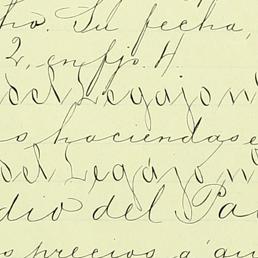 ho. Su fecha,
2, en fjo. 4
del Legajo nº
s haciendas e
del Legajo nº
dio del Pa
s precios, a' qu